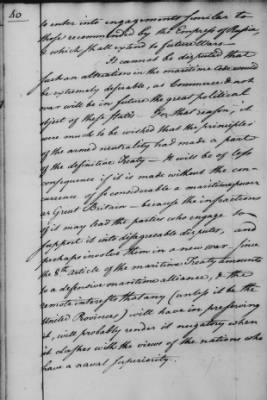 40
to enter into engagements similar to
those recommended by the Empress of Russia,
& which shall extend to future Wars—
It cannot be disputed that
such an alteration in the maritime code would
be extremely desirable, as Commerce & not
war will be in future the great political
object of these States— For that reason, it
were much to be wished that the principles
of the armed neutrality had made a part
of the definitive Treaty— It will be of less
consequence if it is made without the con-
currence of so considerable a maritime power
as Great Britain— because the infractions
of it may lead the parties who engage to
support it into disagreeable disputes, and
perhaps involve them in a new war. Since
the 8th Article of the maritime Treaty amounts
to a defensive maritime alliance, & the
remote interests that any (unless it be the
United Provinces) will have in preserving
it, will probably render it nugatory when
it clashes with the views of the nations who
have a naval superiority.